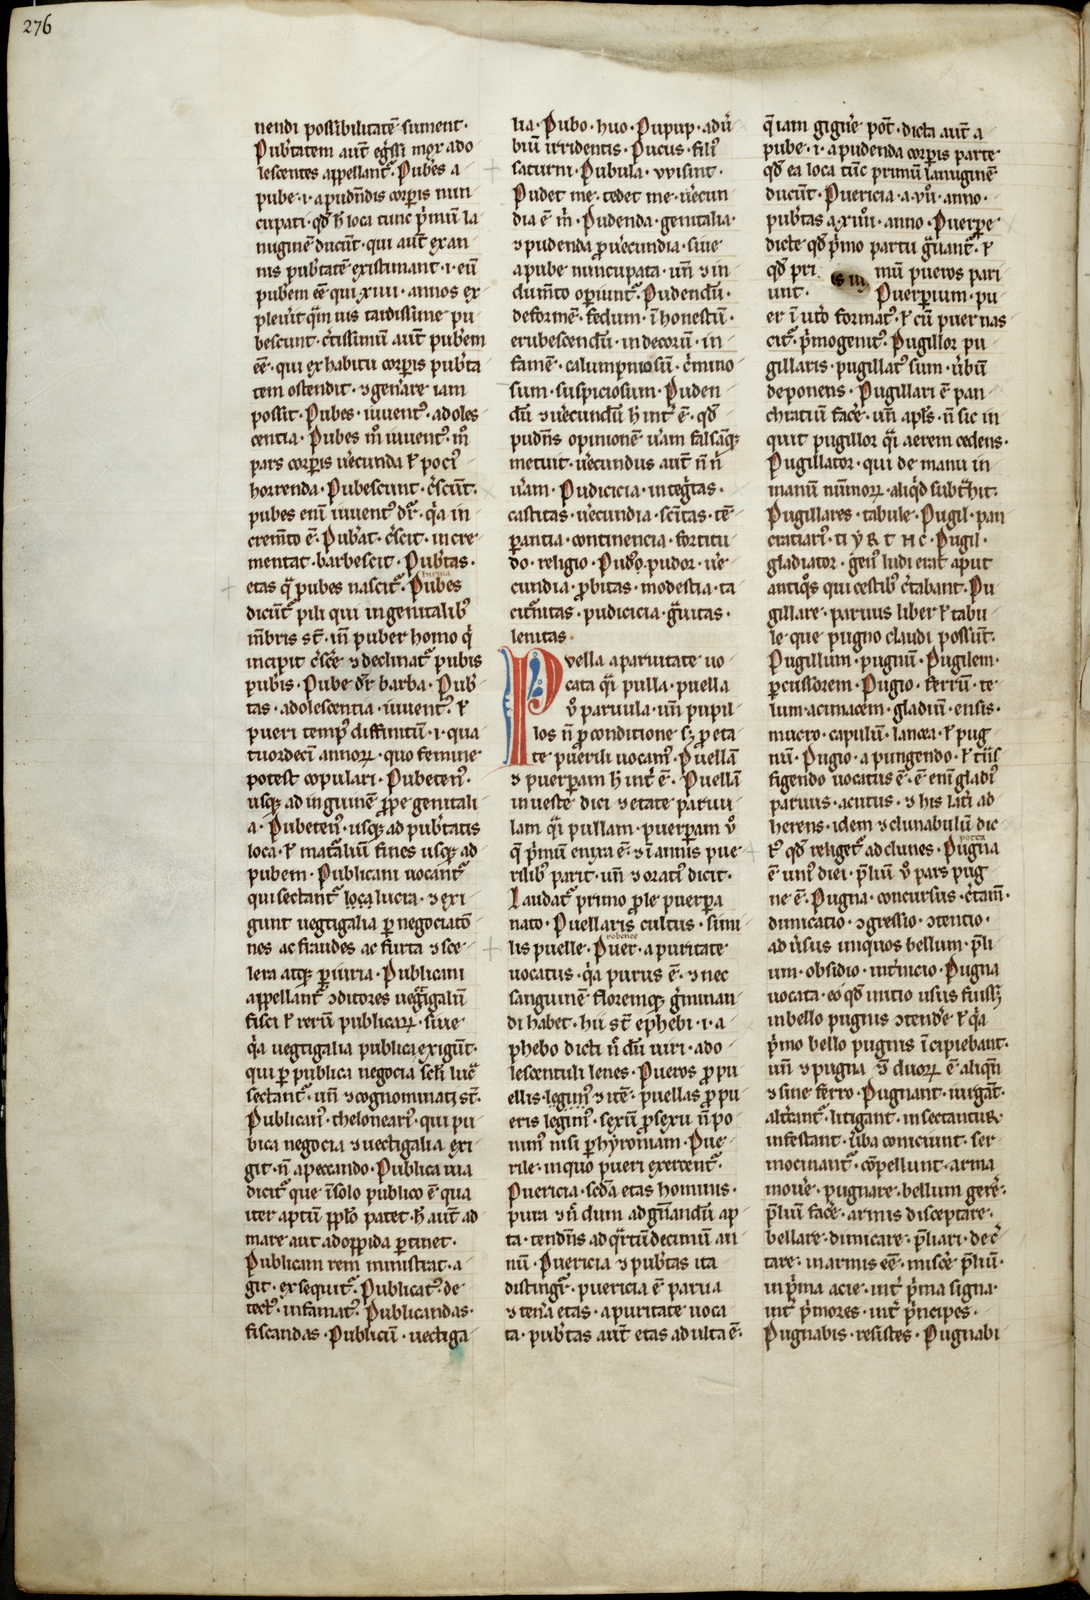 276
nendi possibilitatē sument·
Pub̃tatem aut̄ eg̃ssi mox ado
lescentes appellant᷑· Pubes a
pube·i·apudn̄dis corꝑis nun
cupati· qđ ħ loca tunc p̃mū la
nuginē ducūt· qui aut̄ exan
nis pub̃tatē existimant·i·eū
pub̃em eē qui xiiii· annos ex
pleu̾it q̃m uis tardissime pu
bescunt· c̃tissimū aut̄ pub̃em
eē· qui ex habitu corꝑis pub̃ta
tem ostendit· ⁊ gen̾are iam
possit· Pubes· iuuentꝰ· adoles
centia· Pubes m̊ iuuentꝰ· m̊
pars corꝑis u̾ecunda ł pociꝰ
horrenda· Pubescunt· c̃scūt·
pubes enī iuuentꝰ dr̄· q̃a in
crem̄to ē· Pub̃at· c̃scit· incre
mentat· barbescit· Pub̃tas·
etas q̃ pubes nascit᷑· Pubes
dicūt᷑ pili qui in genitalibꝫ
m̄bris st̄· un̄ puber homo q̇
incipit c̃sc̾e ⁊ declinat᷑ pubis
pub̃is· Pube dr̄ barba· Pub̃
tas· adolescentia· iuuentꝰ· ł
pueri tempꝰ diffinitū·i·qua
tuordecī annoꝝ· quo femine
potest copulari· Pubetenꝰ·
usqꝫ ad inguinē ꝓpe genitali
a· Pubetenꝰ· usqꝫ ad pub̃tatis
loca· ł mat̾aliū fines usqꝫ ad
pubem· Publicani uocant᷑
qui sectant᷑ loca lucra· ⁊ exi
gunt uegtigalia ꝑ negociatō
nes ac fraudes ac furta ⁊ sce
lera atqꝫ ꝑiuria· Publicani
appellant᷑ ↄditores uegtigaliū
fisci ł rerū publicaꝝ· siue
q̃a uegtigalia publica exigūt·
qui ꝑ publica negocia scl̄i luc̃
sectant᷑· un̄ ⁊ cognominati st̄·
Publicanꝰ· thelonearꝰ· qui pu
bica negocia ⁊ uectigalia exi
git· n̄ apeccando· Publica uia
dicit᷑ que ī solo publico ē qua
iter aptū ppl̄o patet· ħ aut̄ ad
mare aut adoppida ꝑtinet·
Publicam rem ministrat· a
git· exsequit᷑· Publicatꝰ· de
tectꝰ· infamatꝰ· Publicandas·
fiscandas· Publicū· uectiga
lia· Pubo· huo· Pupup· adu̾
biū irridentis· Pucus· filiꝰ
saturni· Pubula· vvisint·
Pudet me· tedet me· u̾ecun
dia ē m̄· Pudenda· genitalia·
⁊ pudenda ꝓ u̾ecundia· siue
a pube nuncupata· un̄ ⁊ in
dum̄to oꝑiunt᷑· Pudendū·
deformē· fedum· īhonestū·
erubescendū· indecorū· in
famē· calumpniosū· c̃mino
sum· suspiciosum· Puden
dū ⁊ u̾ecundū h̄ int̾ ē· qđ
pudn̄s opinionē u̾am falsāqꝫ
metuit· u̾ecundus aut̄ n̄ n̄
u̾am· Pudicicia· integ̃tas·
castitas· u̾ecundia· sc̄itas· tē
ꝑantia· continencia· fortitu
do· religio· Pudor· pudor· u̾e
cundia· ꝓbitas· modestia· ta
cit̾nitas· pudicicia· g̃uitas·
lenitas·
Pvella a paruitate uo
cata q̃i pulla· puella
u̾ paruula· un̄ pupil
los n̄ ꝓ conditione sꝫ ꝓ eta
te pu̾erili uocamꝰ· Puellā
⁊ puerꝑam h̄ int̾ ē· Puellā
inueste dici ⁊ etate paruu
lam q̃i pullam· puerꝑam u̾
q̃ p̃mū enixa ē· ⁊ ī annis pue
rilibꝰ parit· un̄ ⁊ oratiꝰ dicit·
Laudat᷑ primo ꝓle puerꝑa
nato· Puellaris cultus· simi
lis puelle· Puer· a puritate
uocatus· q̃a purus ē· ⁊ nec
sanguinē floremqꝫ g̃minan
di habet· hii st̄ ephebi·i·a
phebo dicti n̊ dū uiri· ado
lescentuli lenes· Pueros ꝓ pu
ellis· legimꝰ ⁊ itē· puellas ꝓ pu
eris legimꝰ· sexū ꝓ sexu n̄ po
nimꝰ nisi ꝑ hyroniam· Pue
rile· in quo pueri exercent᷑·
Puericia· scd̄a etas hominis·
pura ⁊ n̄ dum ad gn̄andū ap
ta· tendn̄s ad q̃rtūdecimū an
nū· Puericia ⁊ pub̃tas ita
distingr̄· puericia ē parua
⁊ ten̾a etas· a puritate uoca
ta· pub̃tas aut̄ etas adulta ē·
q̃ iam gign̾e pot̄· dicta aut̄ a
pube·i·a pudenda corꝑis parte
qđ ea loca tūc primū lanuginē
ducūt· Puericia· a·vii̊· anno·
pub̃tas a·xiiii̊· anno· Puerꝑe
dicte qđ p̃mo partu g̃uant᷑· ł
qđ pri mū pueros pari
unt· Puerꝑium· pu
er ī ut̾o formatꝰ· ł cū puer nas
cit᷑· p̃mogenitꝰ· Pugillor pu
gillaris· pugillatꝰ sum· u̾bū
deponens· Pugillari ē pan
chratiū fac̾e· un̄ apl̄s· n̄ sic in
quit pugillor q̃i aerem cedens·
Pugillator· qui de manu in
manū nūmoꝝ· aliqđ subt̃hit·
Pugillares· tabule· Pugil· pan
cratiarꝰ· Pugil·
gladiator· genꝰ ludi erat aput
antiq̊s qui cestibꝰ c̃tabant· Pu
gillare· paruus liber ł tabu
le que pugno claudi possūt·
Pugillum· pugnū· Pugilem·
ꝑcussorem· Pugio· ferrū· te
lum· acinacem· gladiū· ensis·
mucro· capulū· lancea· ł pug
nū· Pugio· a pungendo· ł t̃ns
figendo uocatus ē· ē enī gladiꝰ
paruus· acutus· ⁊ his lat̾i ad
herens· idem ⁊ clunabulū dic
t᷑· qđ religet᷑ ad clunes· Pugna
ē uniꝰ diei· p̃liū u̾ pars pug
ne ē· Pugna· concursus· c̃tam̄·
dimicatio· ↄgressio· ↄtentio·
adu̾sus iniquos bellum· p̃li
um· obsidio· int̾nicio· Pugna
uocata· eo qđ initio usus fuissꝫ
in bello pugnis ↄtend̾e ł q̃a
p̃mo bello pugnis īcipiebant·
un̄ ⁊ pugna duoꝝ ē aliqn̄
⁊ sine ferro· Pugnant· iurgāt·
alt̾cant᷑· litigant· insectantur·
infestant· u̾ba coniciunt· ser
mocinant᷑· cōpellunt· arma
mou̾e· pugnare· bellum ger̾e·
p̃liū fac̾e· armis disceptare·
bellare· dimicare· p̃liari· dec̾
tare· in armis eē· misc̾e p̃liū·
in p̃ma acie· int̾ p̃ma signa·
int̾ p̃mores· int̾ p̃ncipes·
Pugnabis· resistes· Pugnabi